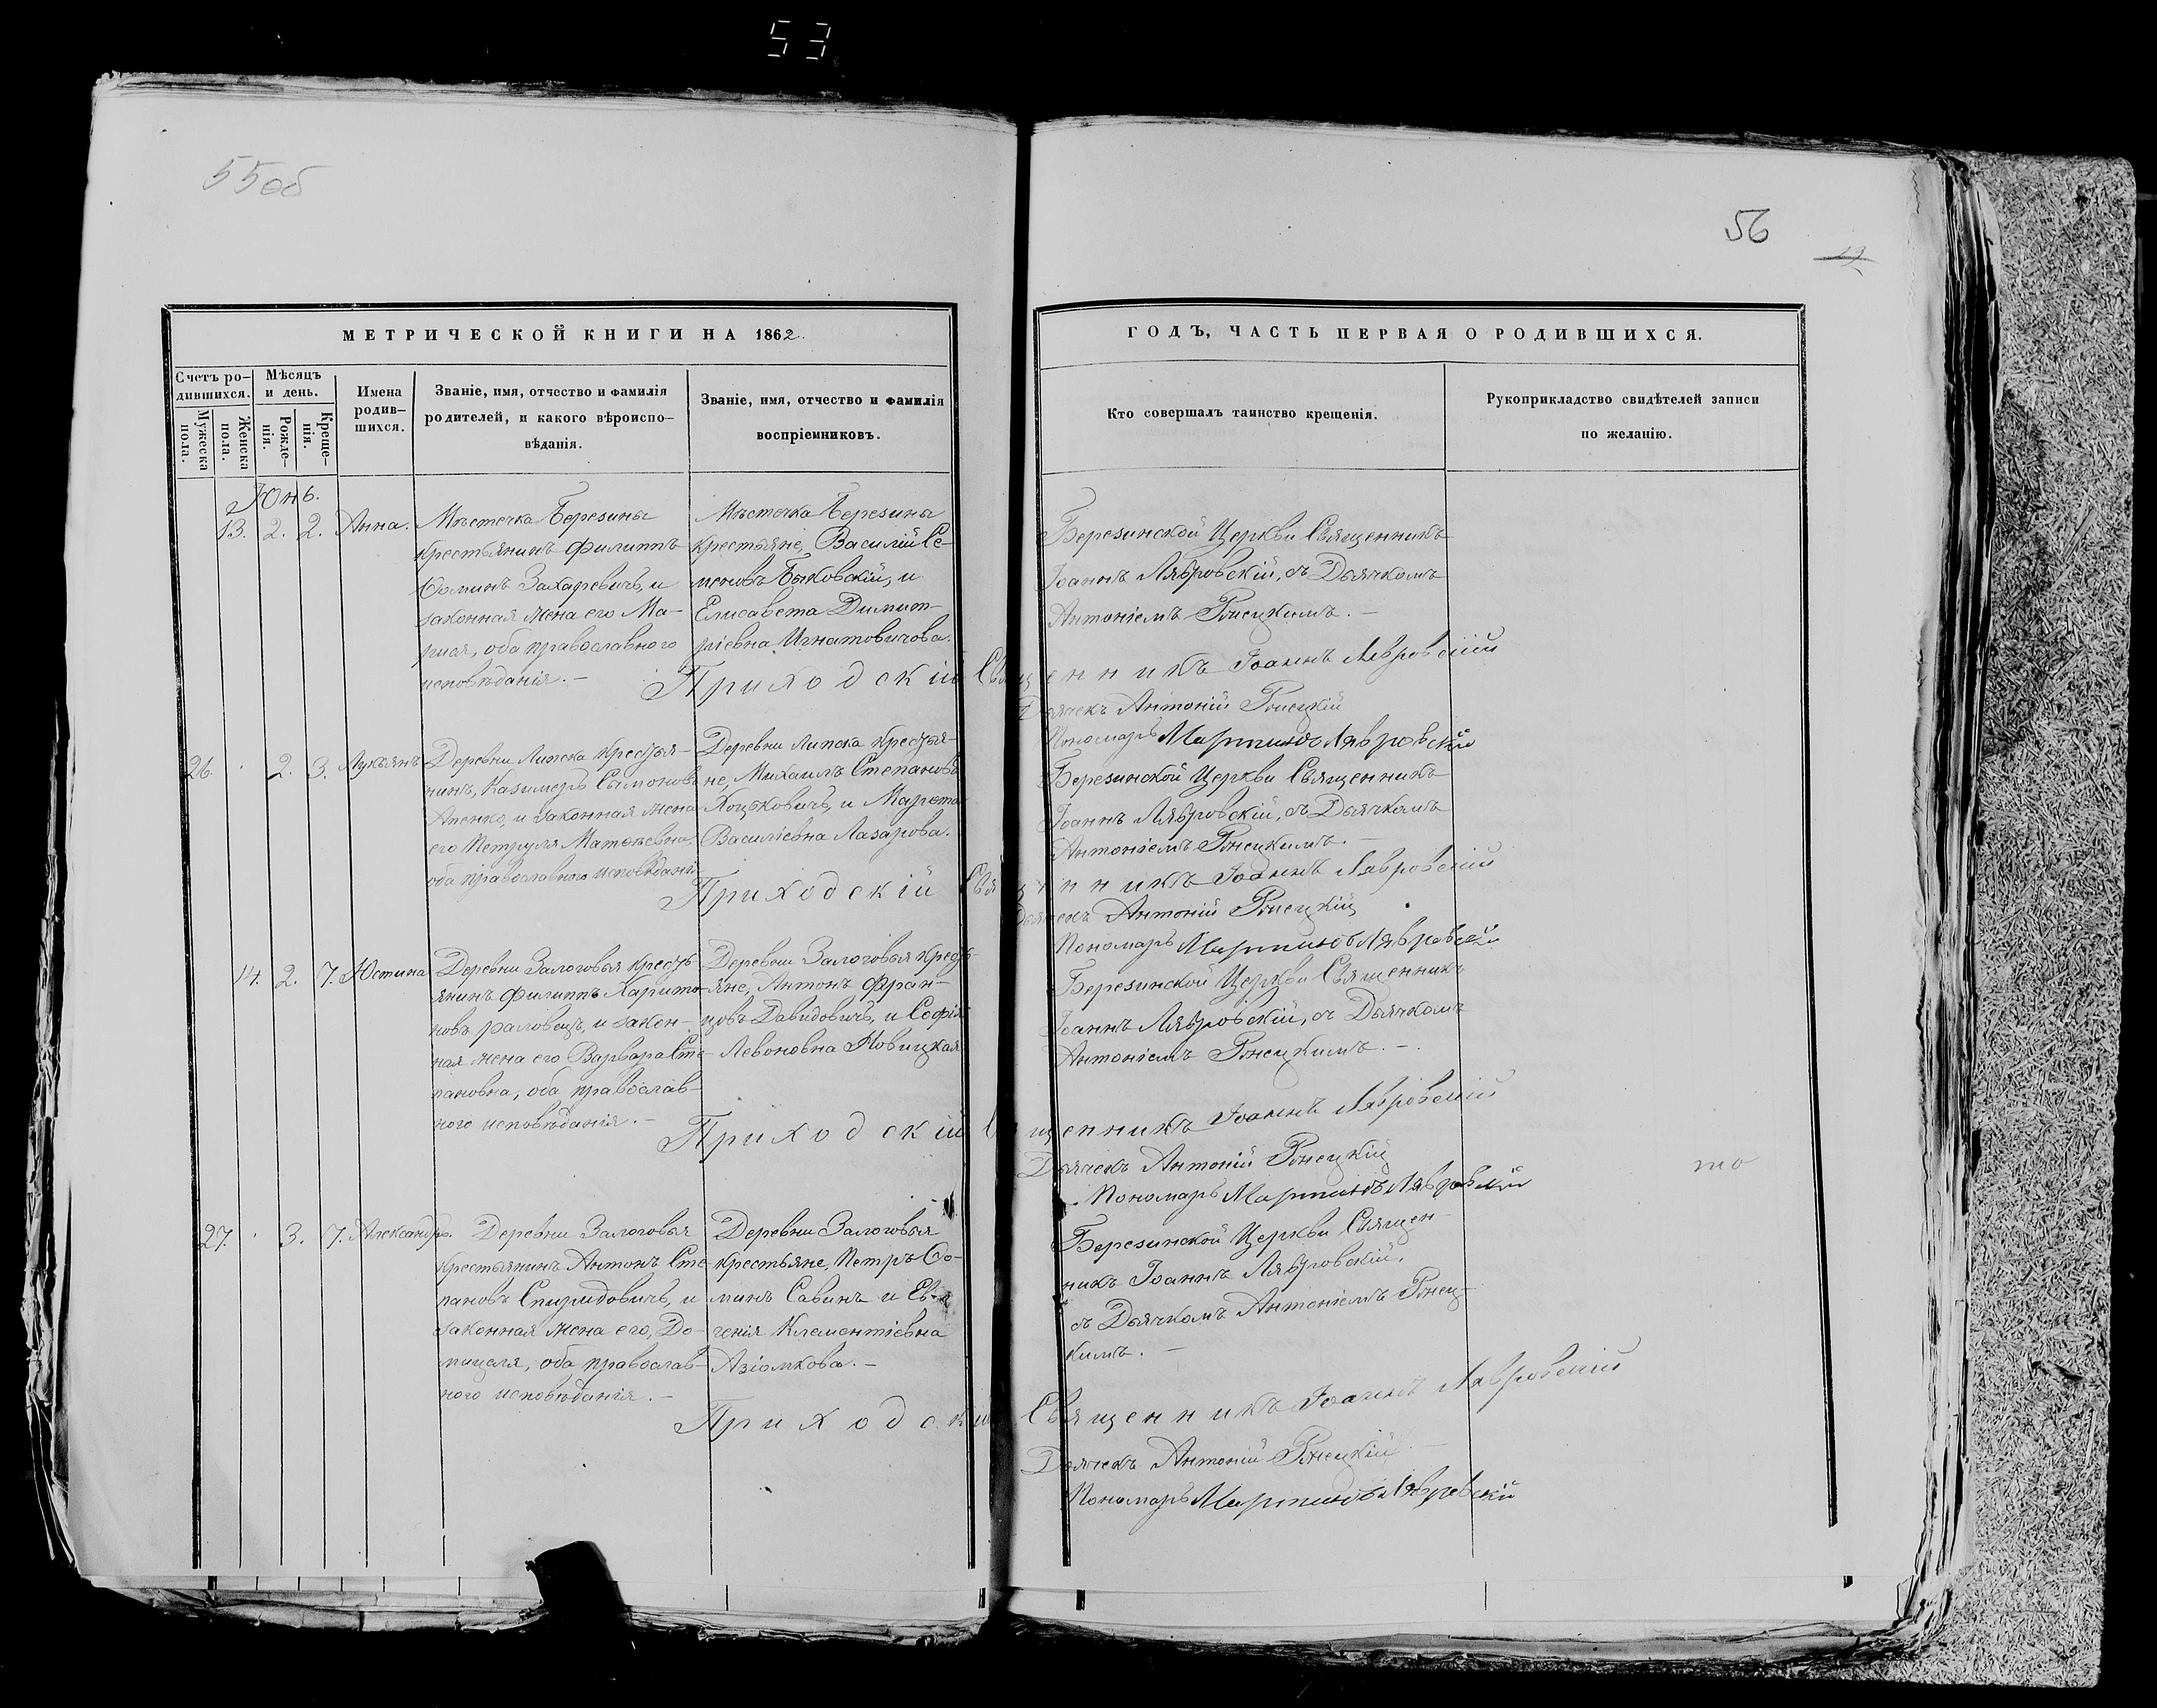 53
55об
56
МЕТРИЧЕСКОЙ КНИГИ НА 1862.
Счетъ ро-
дившихся.
Мужеска
пола.
Женска
пола.
Мѣсяцъ
и день.
Рожде-
нія.
Креще-
нія.
Имена
родив-
шихся.
Званіе, имя, отчество и фамилія
родителей, и какого вѣроиспо-
вѣданія.
Званіе, имя, отчество и фамилія
воспріемниковъ.
ГОДЪ, ЧАСТЬ ПЕРВАЯ О РОДИВШИХСЯ.
Кто совершалъ таинство крещенія.
Рукоприкладство свидѣтелей записи
по желанію.
Іюнь.
13. 2. 2. Анна.
Мѣстечка Березины
крестьянинъ Филиппъ
Ѳоминъ Захаревичъ, и
законная жена его Ма-
рися, оба православного
исповѣданія. –
Мѣстечка Березины
крестьяне, Василій Се-
меновъ Быковскій, и
Елисавета Димит-
ріевна Игнатовичова.
Березинской Церкви Священникъ
Іоаннъ Лявровскій, съ Дьячкомъ
Антоніемъ Ржецкимъ. –
Приходскій Священникъ Іоаннъ Лявровскій
Дьячекъ Антоній Ржецкій
Пономарь Мартинъ Лявровскій
26. 2. 3. Лукьянъ
Деревни Липска крестья-
нинъ, Казимеръ Сымоновъ
Апенко, и законная жена
его Петруля Матѳеевна,
оба православного исповѣданія
Деревни Липска крестья-
не, Михаилъ Степановъ
Хоцьковичъ, и Марета
Василіевна Лазарова.
Березинской Церкви Священникъ
Іоаннъ Лявровскій, съ Дьячкомъ
Антоніемъ Ржецкимъ. –
Приходскій Священникъ Іоаннъ Лявровскій
Дьячекъ Антоній Ржецкій
Пономарь Мартинъ Лявровскій
14. 2. 7. Юстина
Деревни Залоговья кресть
янинъ Филиппъ Харито-
новъ раловецъ, и закон-
ная жена его Варвара Сте-
пановна, оба православ-
ного исповѣданія. –
Деревни Залоговья кресть-
яне, Антонъ Фран-
цовъ Давидовичъ, и Софія
Левоновна Новицкая
Березинской Церкви Священникъ
Іоаннъ Лявровскій, съ Дьячкомъ
Антоніемъ Ржецкимъ. –
Приходскій Священникъ Іоаннъ Лявровскій
Дьячекъ Антоній Ржецкій
Пономарь Мартинъ Лявровскій
то
27. 3. 7. Александръ.
Деревни Залоговья
крестьянинъ Антонъ Сте
пановъ Спиридовичъ, и
законная жена его, До-
мицеля, оба православ-
ного исповѣданія. –
Деревни Залоговья
крестьяне, Петръ Ѳо-
минъ Савинъ и Ев-
генія Клементіевна
Азіомкова. –
Березинской Церкви Священ-
никъ Іоаннъ Лявровскій,
съ Дьячкомъ Антоніемъ Ржец-
кимъ. –
Приходскій Священникъ Іоаннъ Лявровскій
Дьячекъ Антоній Ржецкій
Пономарь Мартинъ Лявровскій